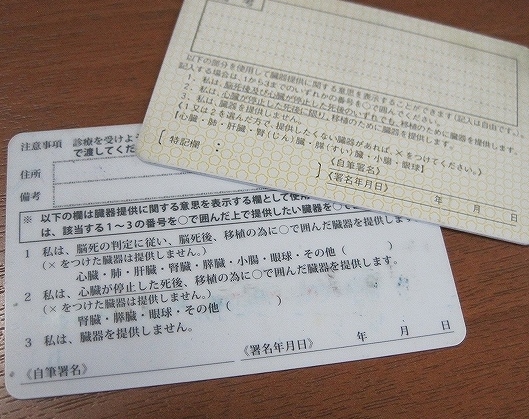 備考
以下の部分を使用して臓器提供に関する意思を表示することができます(記入は自由です。)
記入する場合は、1から3までのいずれかの番号を○で囲んでください。
1. 私は、脳死後及び心臓が停止した死後のいずれでも、移植のために臓器を提供します。
2. 私は、心臓が停止した死後に限り、移植のために臓器を提供します。
3. 私は、臓器を提供しません。
《1又は2を選んだ方で、提供したくない臓器があれば、×をつけてください。》
【心臓・肺・肝臓・腎(じん)臓・膵(すい)臓・小腸・眼球】
〔特記欄:
《自筆署名》
《署名年月日》 年 月 日
注意事項 診療を受けよう
で渡してくだ
住所
備考
※ 以下の欄は臓器提供に関する意思を表示する欄として使用
は、該当する1~3の番号を○で囲んだ上で提供したい臓器を○で
1 私は、脳死の判定に従い、脳死後、移植の為に○で囲んだ臓器を提供します。
(×をつけた臓器は提供しません。)
心臓・肺・肝臓・腎臓・膵臓・小腸・眼球・その他( )
2 私は、心臓が停止した死後、移植の為に○で囲んだ臓器を提供します。
(×をつけた臓器は提供しません。)
腎臓・膵臓・眼球・その他( )
3 私は、臓器を提供しません。
《自筆署名》 《署名年月日》 年 月 日